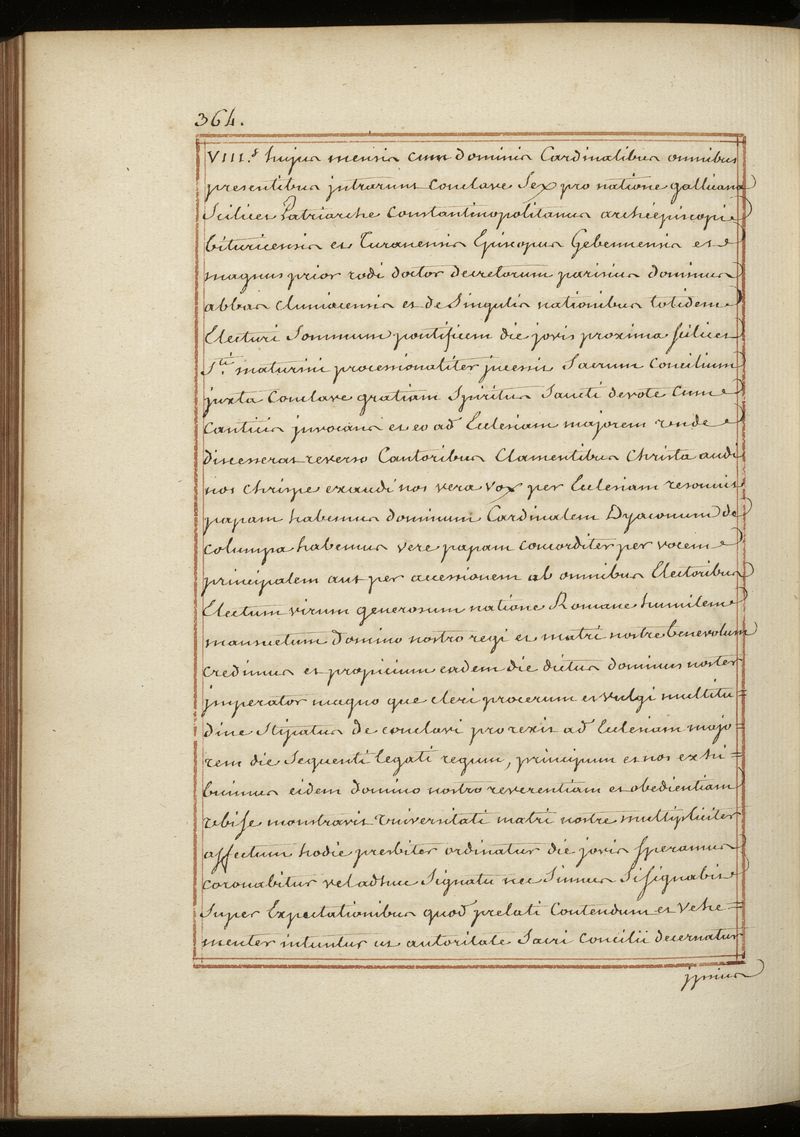 364.
VIII.s hujus mensis cum dominis Cardinalibus omnibus
presentibus jntrarunt Conclave Sex pro natione gallicana
Scilicet Patriarche Constantinopolitanus archiepiscopi
bituricensis et Turonensis Episcopus Gebennensis et
magnus prior rodi doctor decretorum parisius dominus
abbas cluniacensis et de Singulis nationibus totidem
Electuri Sommum pontificem die jovis proxima scilicet
S.ti maturini processionaliter jncessit Sacrum Concilium
juxta Conclave gratiam Spiritus Sancti devote Cum
Canticis jnvocans et eo ad Eclesiam majorem unde
discesserat reverso Cantoribus Clamentibus Christa audi
nos Christe exaudi nos vera Vox per Eclesiam resonuit
papam habemus dominum Cardinalem Dyaconum de
Columpa habemus vere papam concorditer per vocem
principalem aut per accessionem ab omnibus Electoribus
Electum virum generosum natione Romane humilem
mansuetum domino nostro regi et matri nostre benevolum
Credimus et propicium eadem die dictus dominus noster
jmperator magno que cleri procerum et vulgi multitu=
dine Stipatus de conclavi prorexit ad Eclesiam majo
rem die Sequenti legati regum, principum et nos exhi=
buimus eidem domino nostro reverentiam et obedientiam
ubi se monstravit Universitati matri nostre multipliciter
affectum hodie presbiter ordinatur die jovis Speramus
Coronabitur vel adhuc Signatu nec Scimus Si signabit
Super Expectationibus quod prelati Contendum et Vehe=
menter intuntur ut autoritate Sacri Concilii decernatur
jpsius